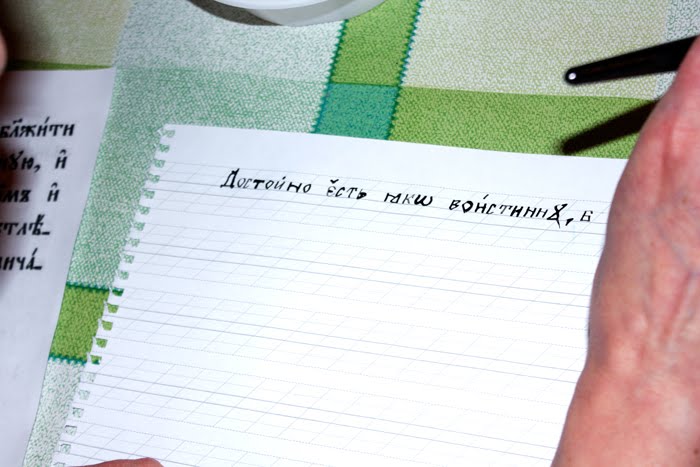 блжи́ти
ꙋю, и҆
мъ и҆
стлѣ-
нича́-
Достойно є҆сть ꙗкѡ вои́стиннꙋ, б